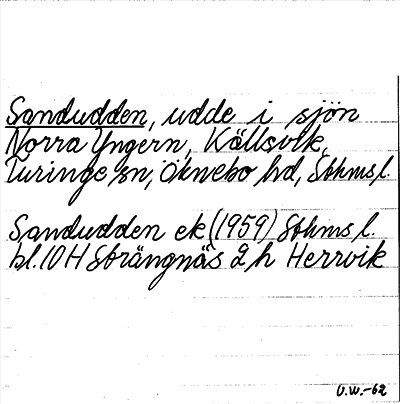 Sandudden, udde i sjön
Norra Yngern, Källsvik,
Turinge sn, Öknebo hd, Sthms l.
Sandudden ek (1959) Sthms l.
bl. 10 H Strängnäs 2 h Herrvik
U.W.-62